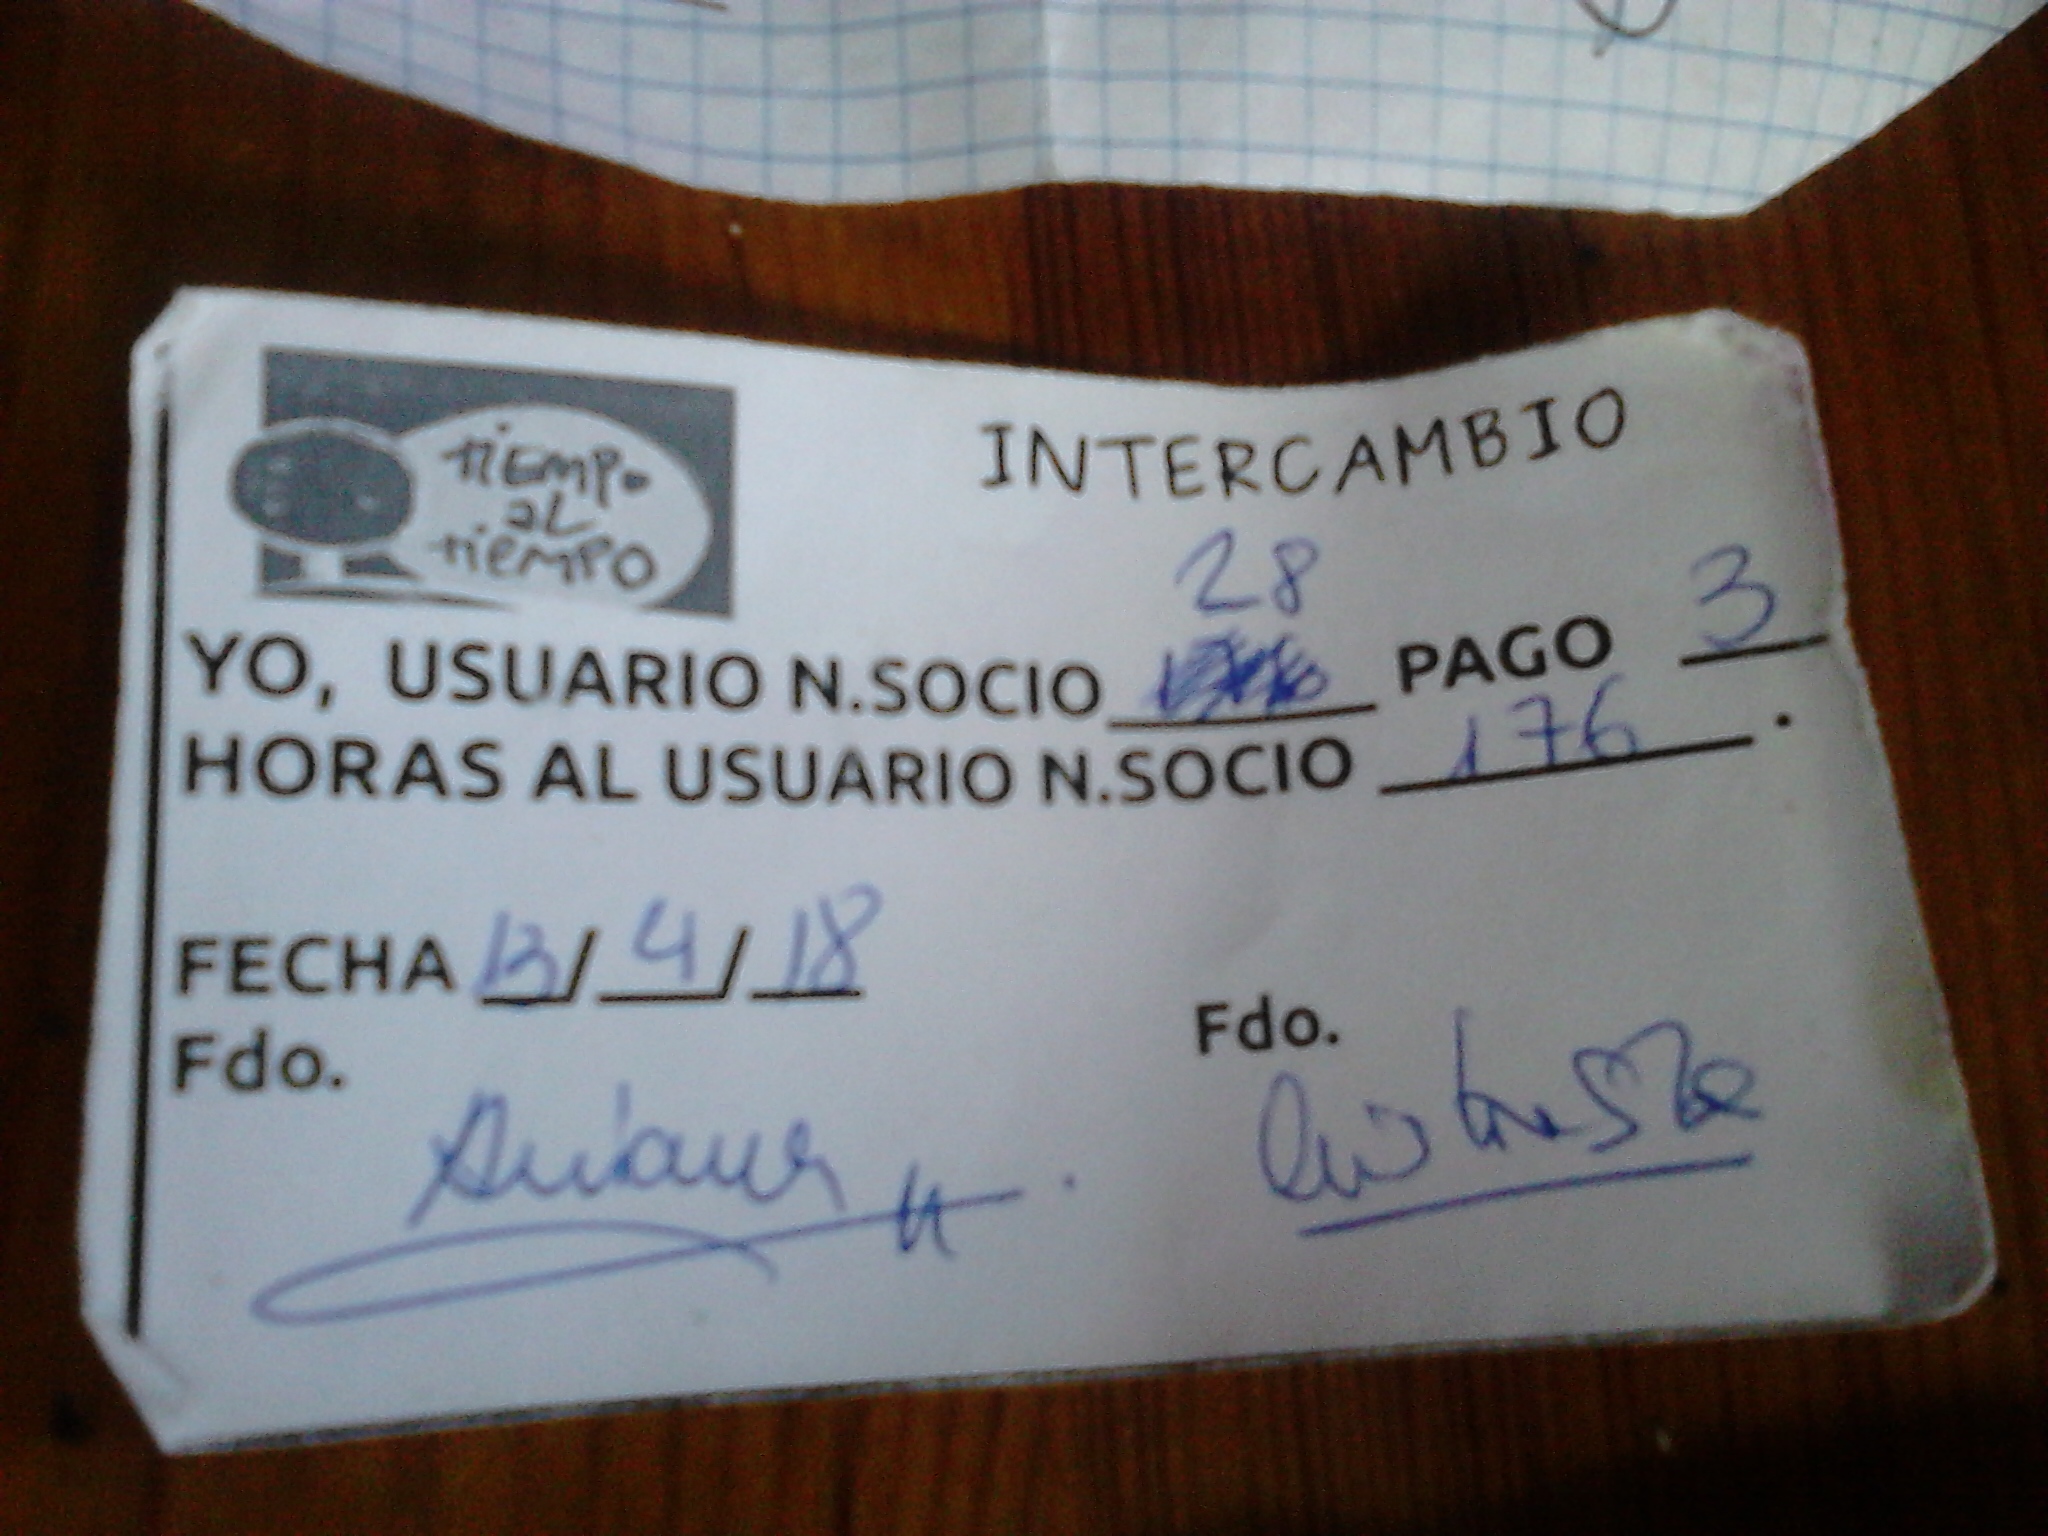 tiEMPo
aL
tiEMPO
INTERCAMBIO
28
YO, USUARIO N.SOCIO PAGO 3
HORAS AL USUARIO N.SOCIO 176.
FECHA 13/4/18
Fdo.
Fdo.